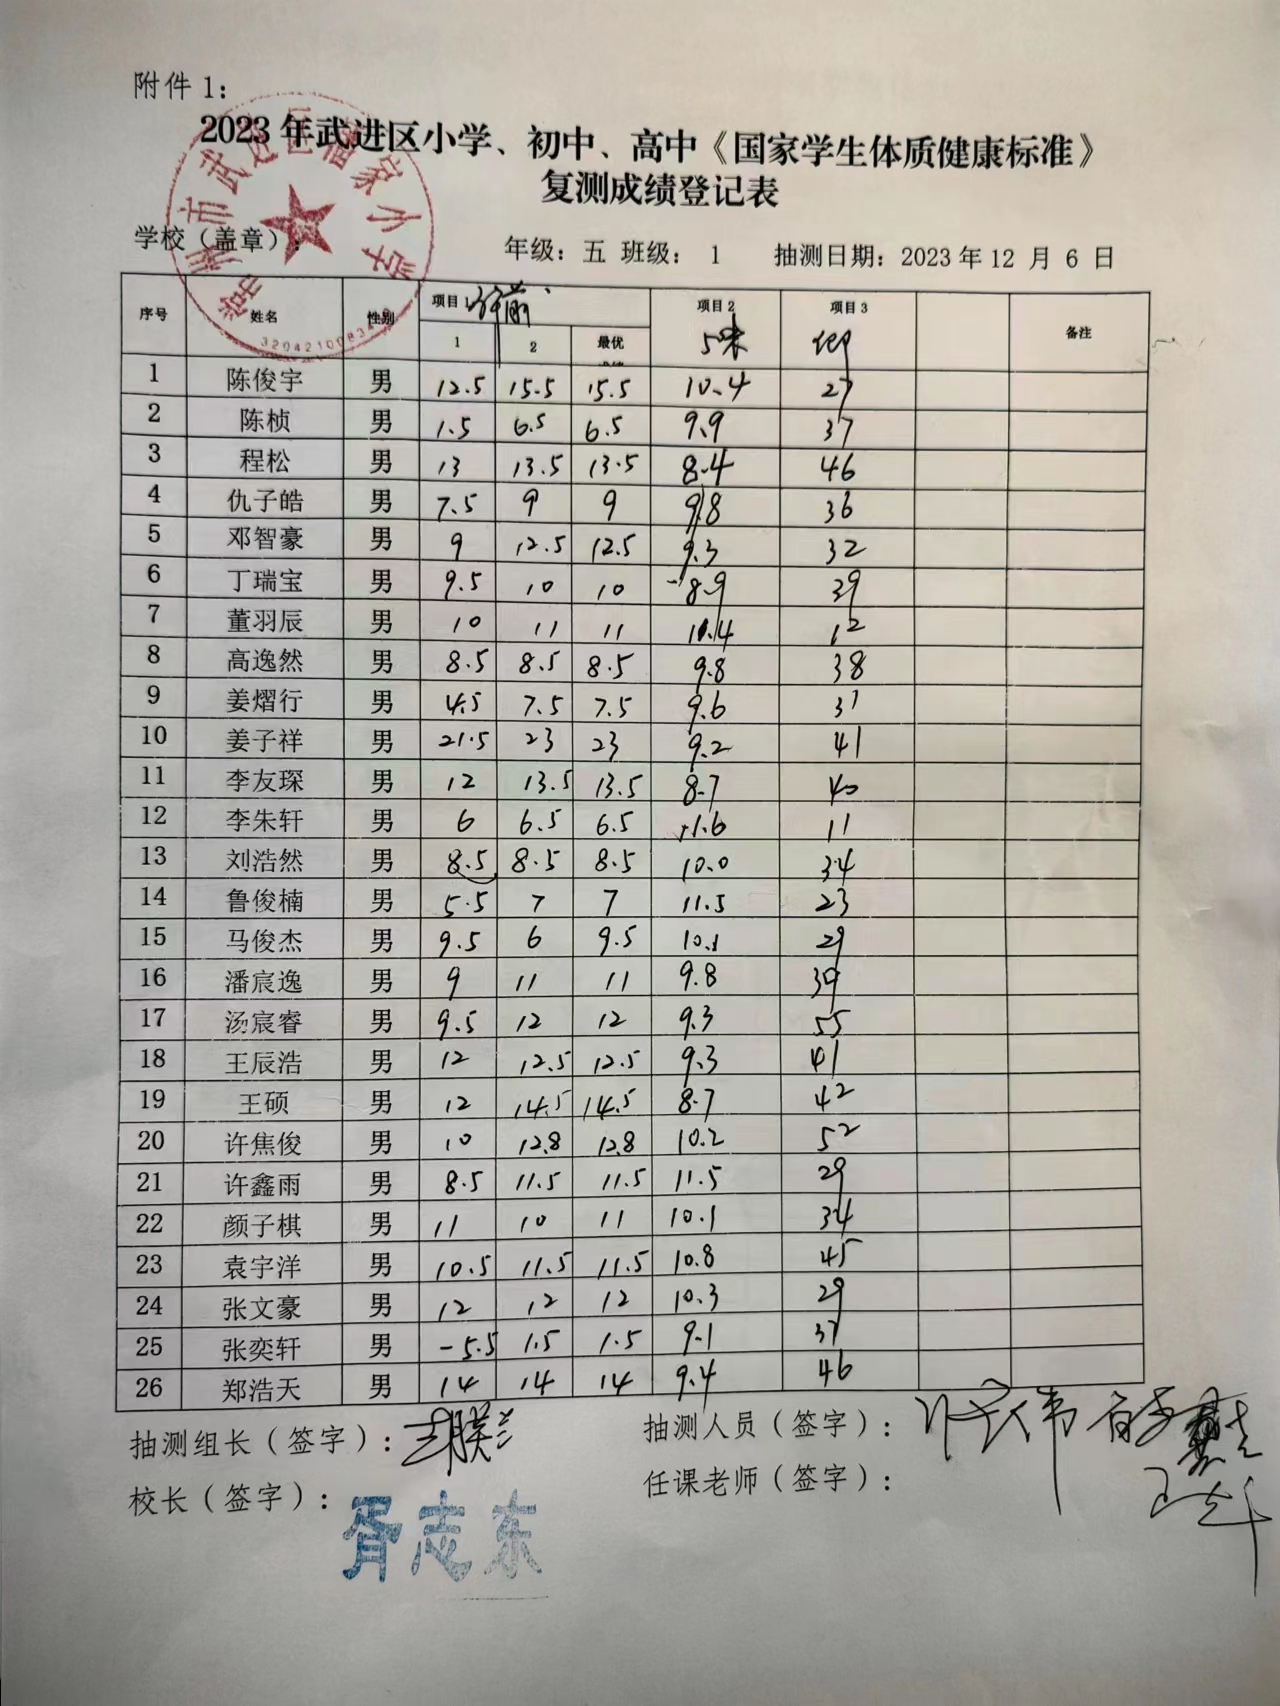 附件 1：
2023 年武进区小学、初中、高中《国家学生体质健康标准》
复测成绩登记表
学校（盖章）： 年级：五 班级： 1 抽测日期：2023 年 12 月 6 日
序号 姓名 性别 项目 1 体前 项目 2 项目 3 备注
1 2 最优
1 陈俊宇 男 12.5 15.5 15.5 10.4 27
2 陈桢 男 1.5 6.5 6.5 9.9 37
3 程松 男 13 13.5 13.5 8.4 46
4 仇子皓 男 7.5 9 9 9.8 36
5 邓智豪 男 9 12.5 12.5 9.3 32
6 丁瑞宝 男 9.5 10 10 8.9 39
7 董羽辰 男 10 11 11 12
8 高逸然 男 8.5 8.5 8.5 9.8 38
9 姜熠行 男 4.5 7.5 7.5 9.6 31
10 姜子祥 男 21.5 23 23 9.2 41
11 李友琛 男 12 13.5 13.5 8.7 40
12 李朱轩 男 6 6.5 6.5 11.6 11
13 刘浩然 男 8.5 8.5 8.5 10.0 34
14 鲁俊楠 男 5.5 7 7 11.5 23
15 马俊杰 男 9.5 6 9.5 10.1 29
16 潘宸逸 男 9 11 11 9.8 39
17 汤宸睿 男 9.5 12 12 9.3 55
18 王辰浩 男 12 12.5 12.5 9.3 41
19 王硕 男 12 14.5 14.5 8.7 42
20 许焦俊 男 10 12.8 12.8 10.2 52
21 许鑫雨 男 8.5 11.5 11.5 11.5 29
22 颜子棋 男 11 10 11 10.1 34
23 袁宇洋 男 10.5 11.5 11.5 10.8 45
24 张文豪 男 12 12 12 10.3 29
25 张奕轩 男 -5.5 1.5 1.5 9.1 37
26 郑浩天 男 14 14 14 9.4 46
抽测组长（签字）： 抽测人员（签字）：
校长（签字）： 胥志东 任课老师（签字）：